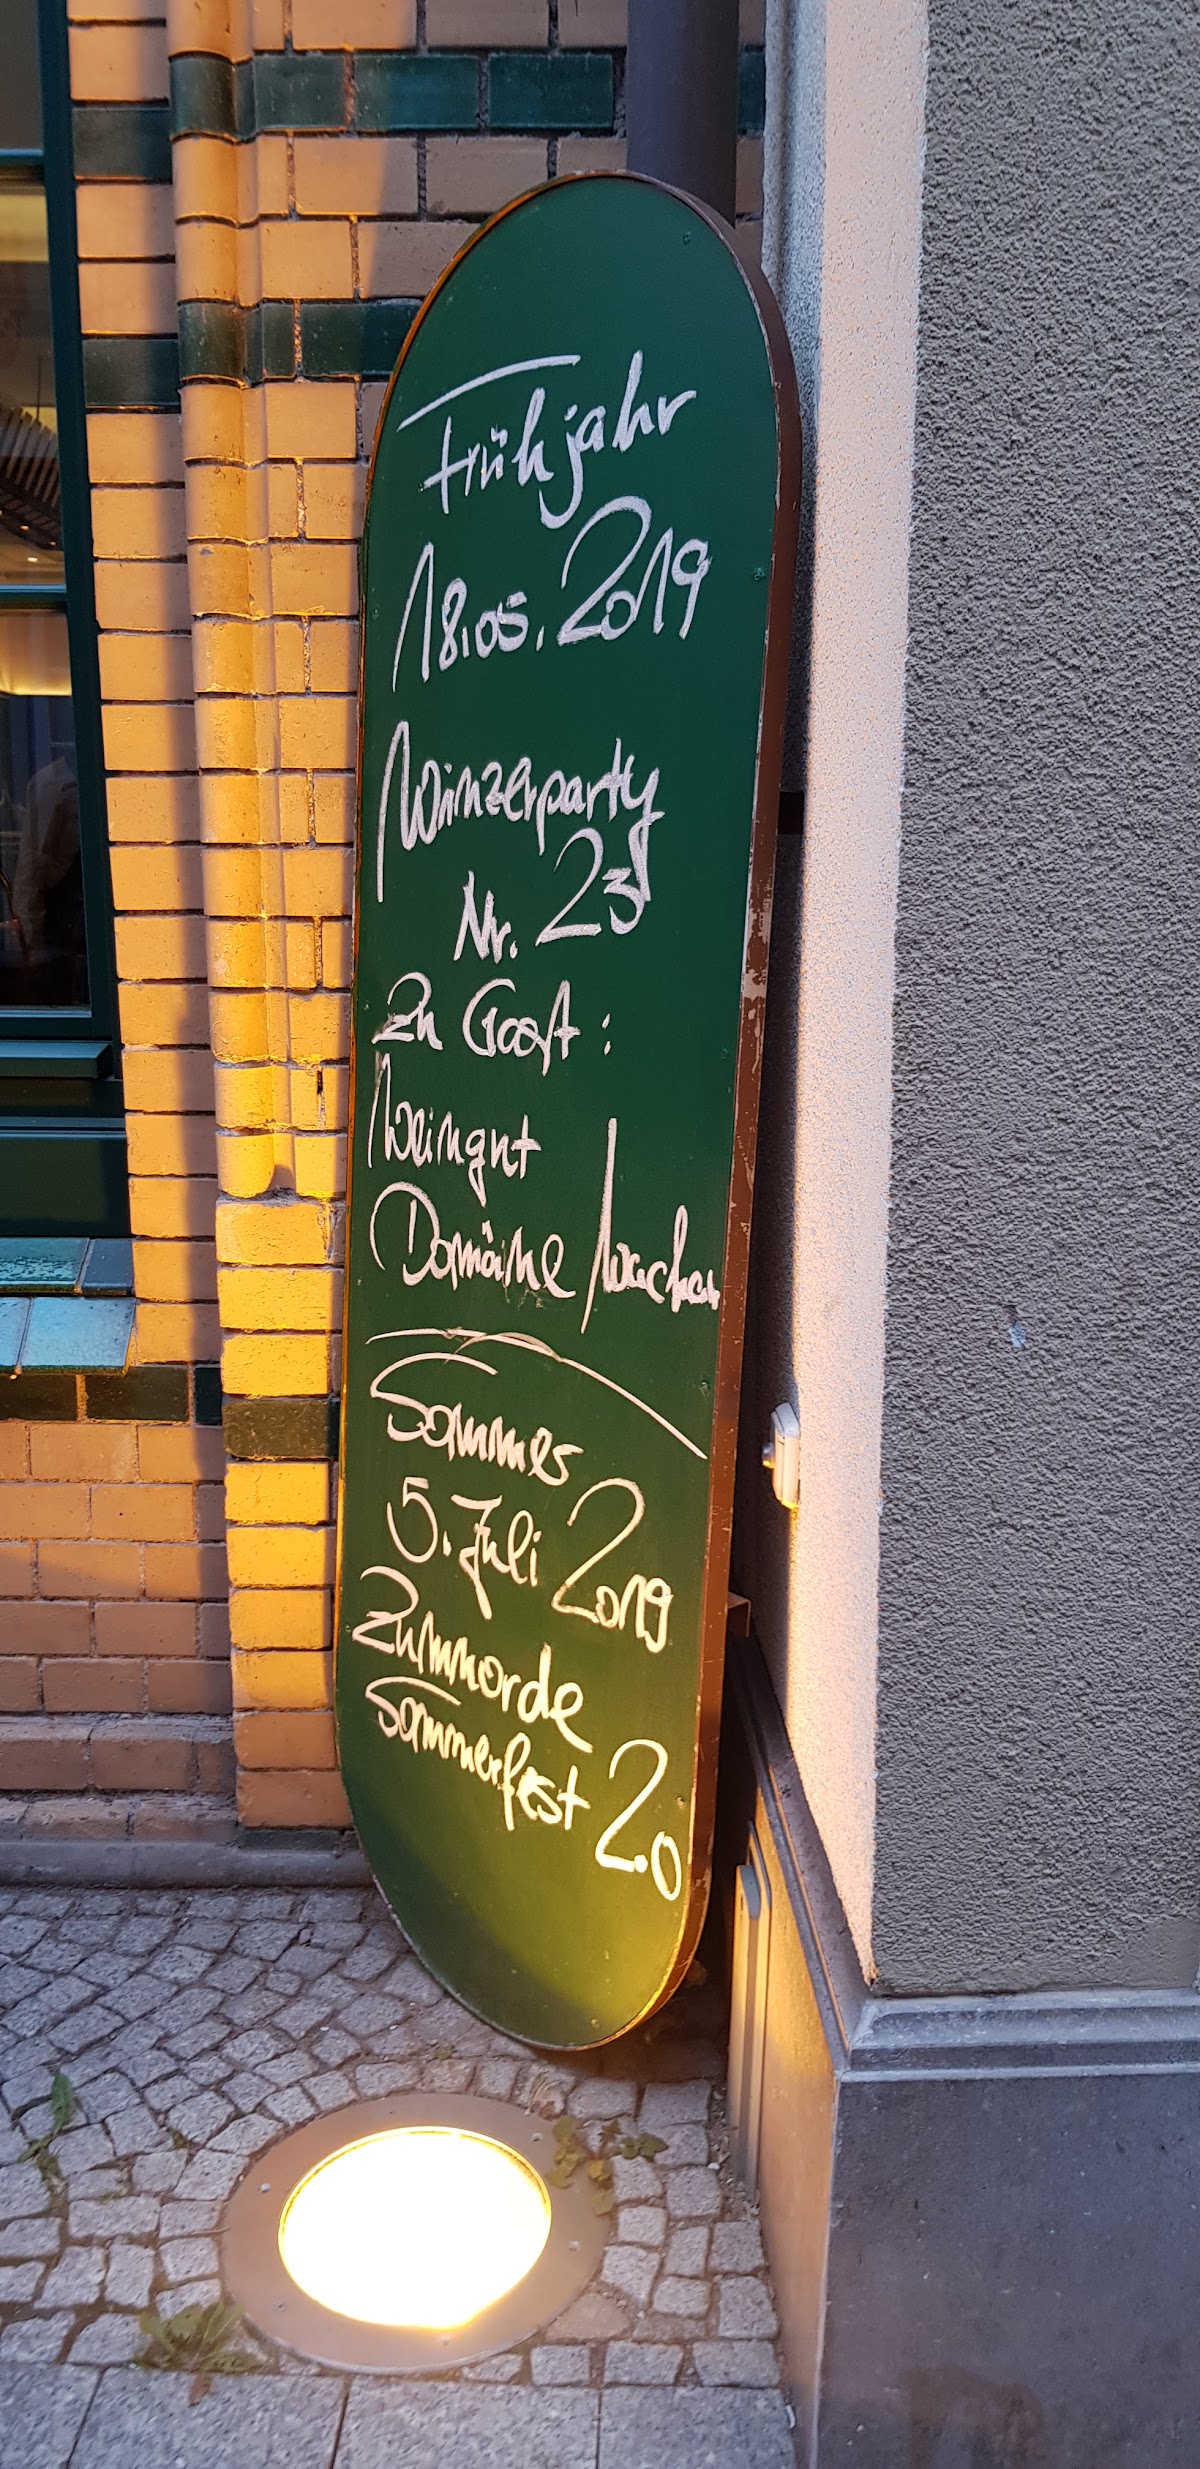 Frühjahr
18.05.2019
Winzerparty
Nr. 23
Zu Gast:
Weingut
Domäine Wachau
Sommer
5. Juli 2019
Zummorde
Sommerfest 2.0